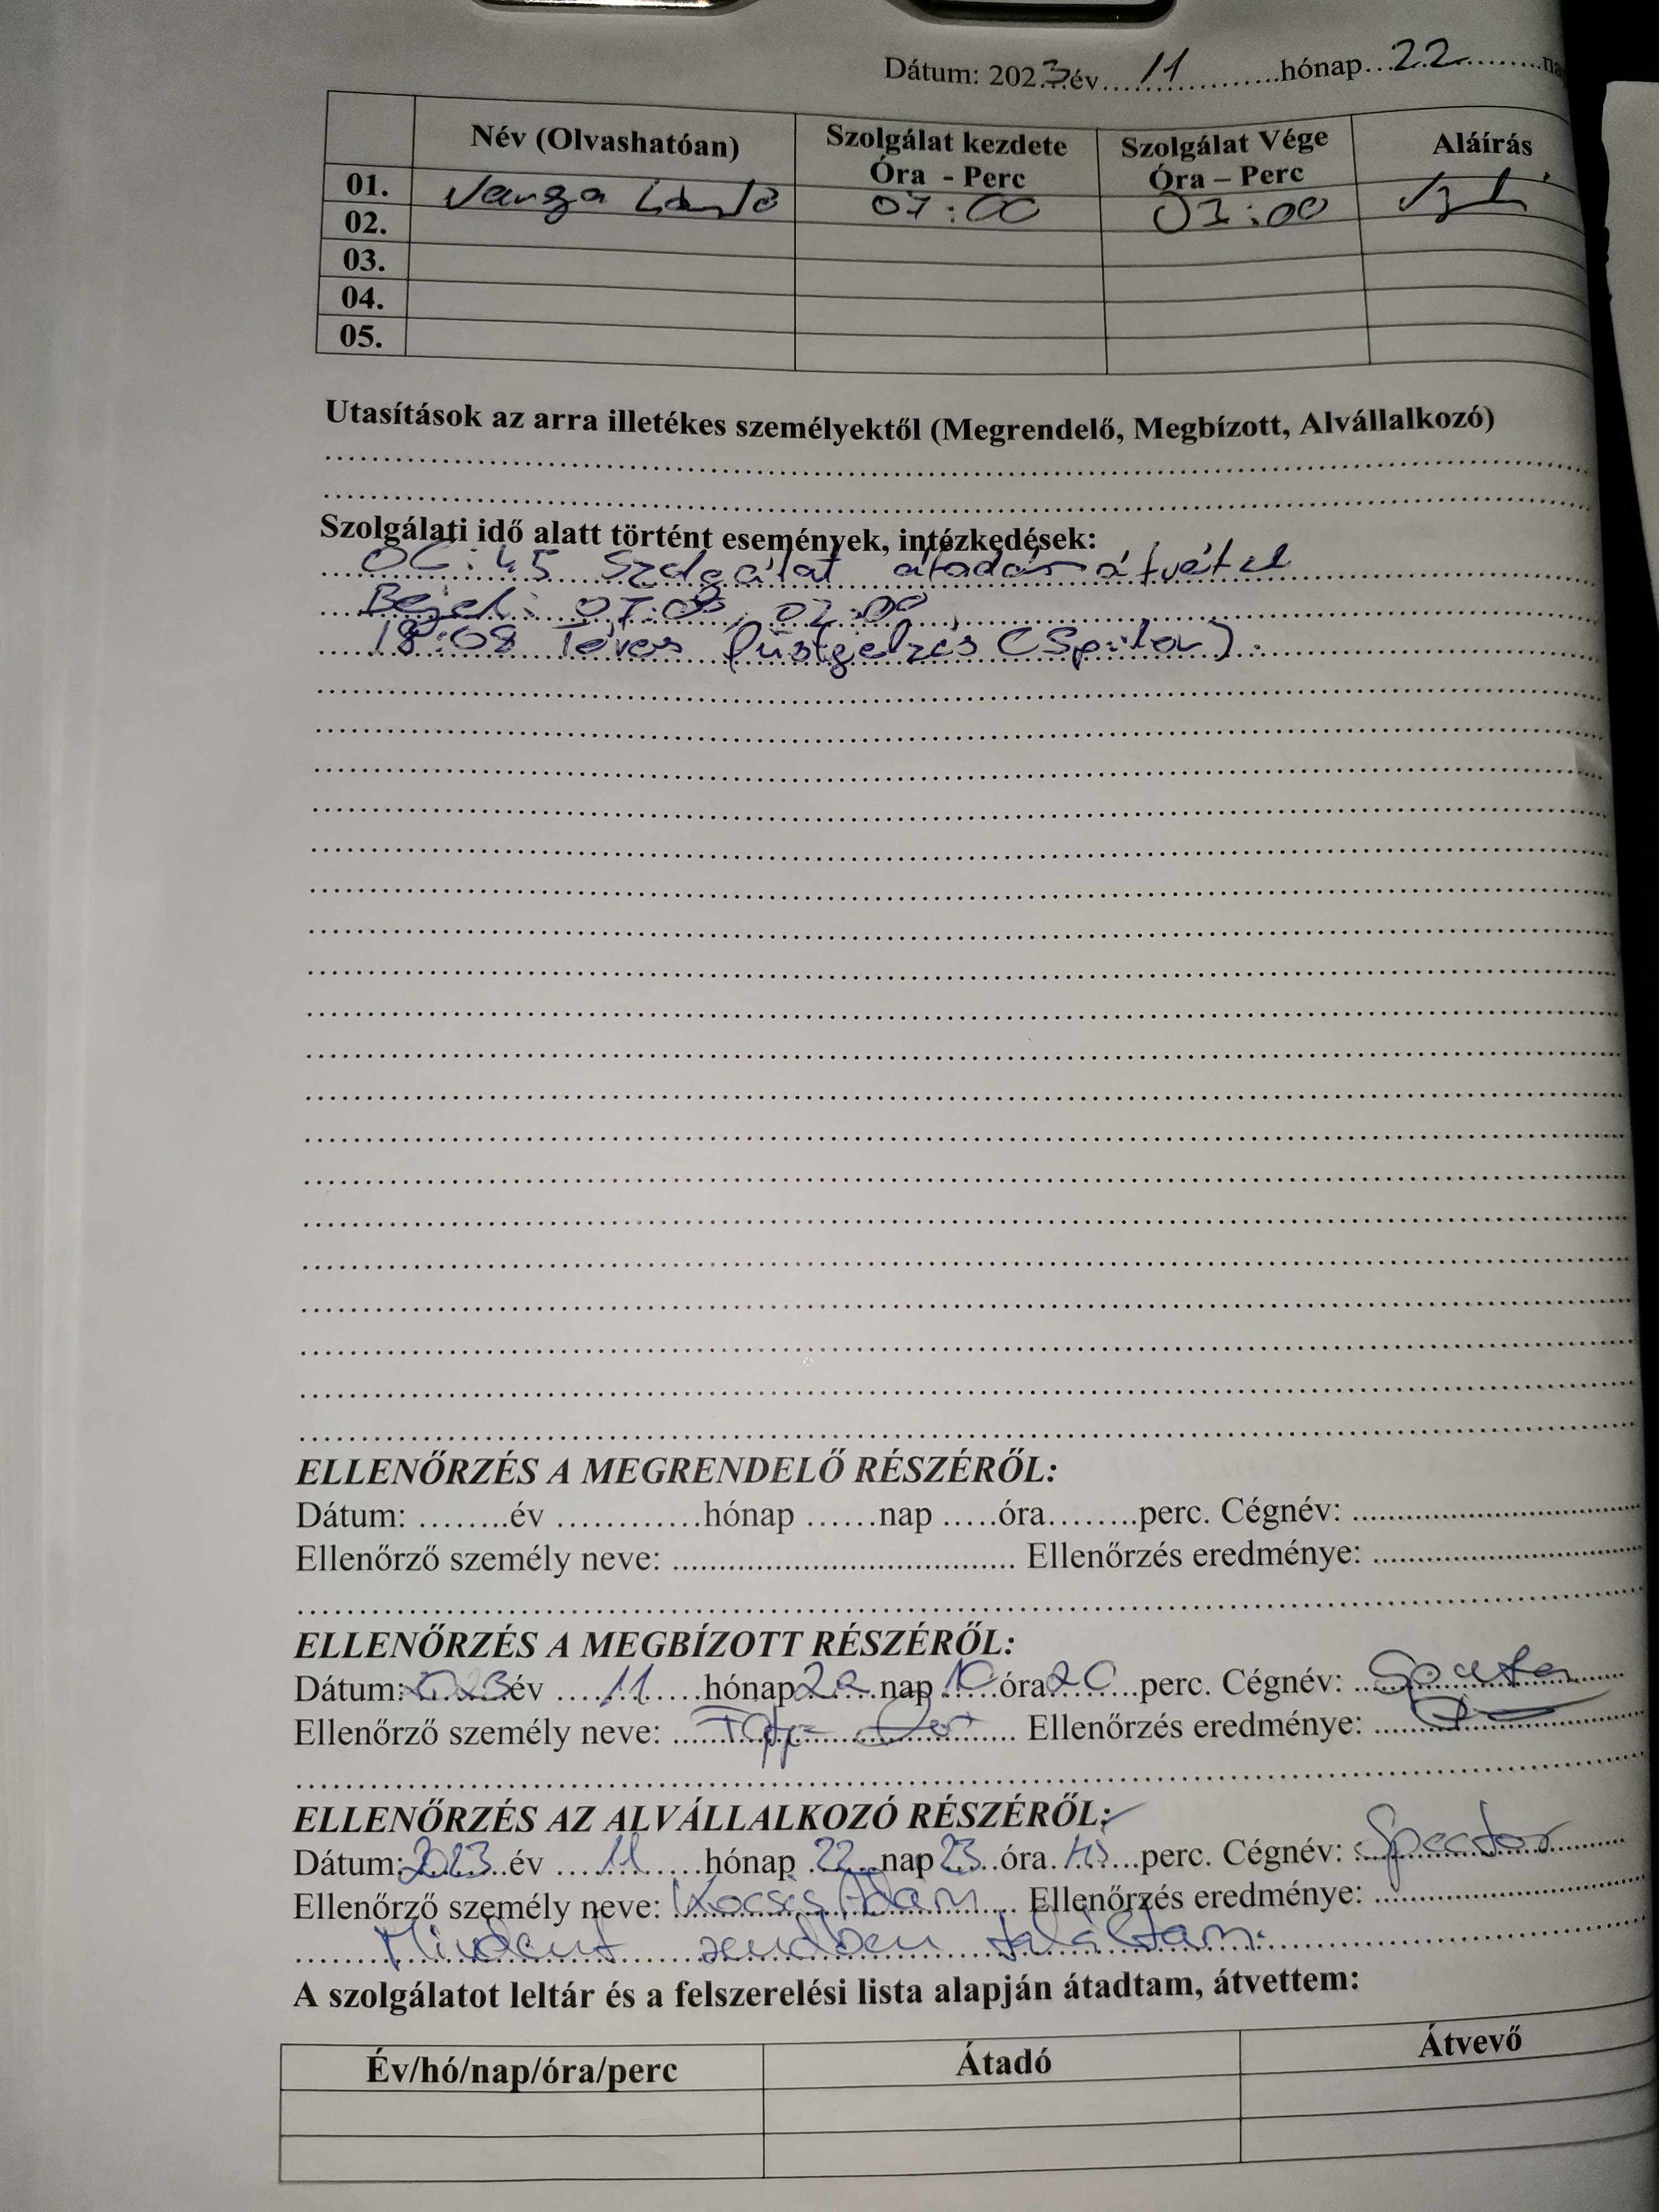 Dátum: 2023 év 11 hónap 22
Név (Olvashatóan) Szolgálat kezdete Óra - Perc Szolgálat Vége Óra – Perc Aláírás
01. Varga László 07:00 07:00
02.
03.
04.
05.
Utasítások az arra illetékes személyektől (Megrendelő, Megbízott, Alvállalkozó)
Szolgálati idő alatt történt események, intézkedések:
06:45 Szolgálat átadás átvétel
Bejel: 07:00,
18:08 Téves füstjelzés
ELLENŐRZÉS A MEGRENDELŐ RÉSZÉRŐL:
Dátum: ........év ............hónap ......nap .....óra........perc. Cégnév: ..............................
Ellenőrző személy neve: .................................. Ellenőrzés eredménye: ..............................
ELLENŐRZÉS A MEGBÍZOTT RÉSZÉRŐL:
Dátum: 2023 év 11 hónap 22 nap 10 óra 20 perc. Cégnév:
Ellenőrző személy neve: Ellenőrzés eredménye:
ELLENŐRZÉS AZ ALVÁLLALKOZÓ RÉSZÉRŐL:
Dátum: 2023 év 11 hónap 22 nap 23 óra perc. Cégnév: Spector
Ellenőrző személy neve: Kocsis Ádám Ellenőrzés eredménye:
Mindent rendben találtam.
A szolgálatot leltár és a felszerelési lista alapján átadtam, átvettem:
Év/hó/nap/óra/perc Átadó Átvevő